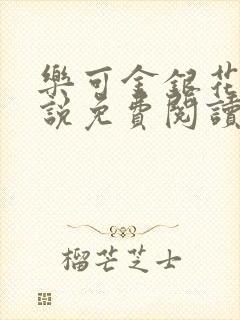 樂可金銀花
說免費閱讀
榴芒芝士